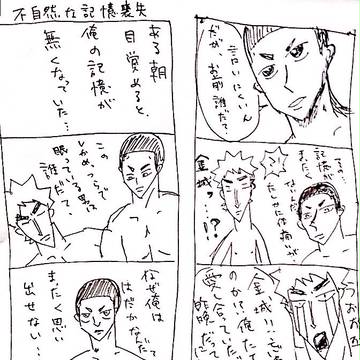 不自然な記憶喪失
ある朝
目覚めると、
俺の記憶が
無くなっていた…
この
しかめっつらで
眠っている男は
誰だ
なぜ俺は
はだかなんだ?
まったく思い
出せない…
言いにくいん
だが、
お前誰だ?
その、
記憶が
たしかに痛いが
金城っ…!?
金城!!
のか?俺たち
愛し合っていた
昨晩だって